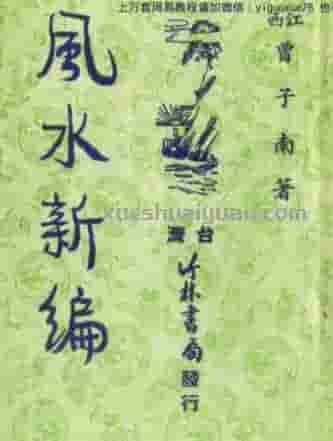 上万套周易教程请加微信
江西
曾子南著
台灣
竹林書局發行
風水新編
xueshuaiyuan.com